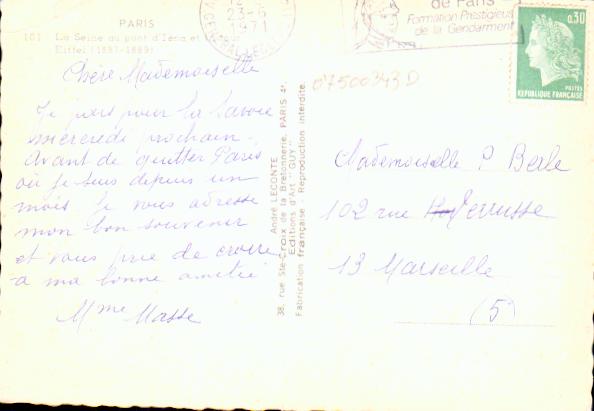 PARIS
101 La Seine au pont d'Iéna et la Tour
Eiffel (1887-1889)
Chère Mademoiselle
Je pars pour la Savoie
mercredi prochain.
Avant de quitter Paris
où je suis depuis un
mois je vous adresse
mon bon souvenir
et vous prie de croire
à ma bonne amitié
Mme Masse
André LECONTE
38, rue Ste-Croix de la Bretonnerie, PARIS 4e.
Editions d'Art "GUY"
Fabrication française - Reproduction interdite.
23-6
1971
de Paris
Formation Prestigieuse
de la Gendarmerie
0,30
POSTES
REPUBLIQUE FRANÇAISE
07500343D
Mademoiselle P Berle
102 rue Ferrusse
13 Marseille
(5)